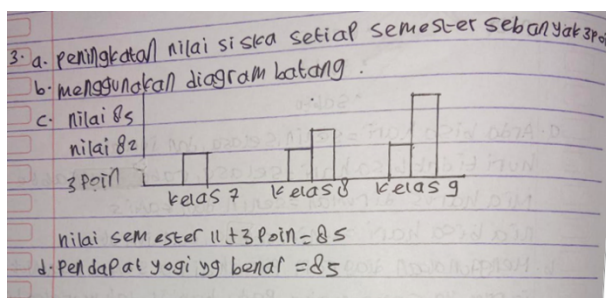 3. a. peningkatan nilai siska setiap semester sebanyak 3poi
b. menggunakan diagram batang :
c. nilai 85
nilai 82
3 poin
kelas 7 kelas 8 kelas 9
nilai semester 11 + 3 Poin = 85
d. Pendapat yogi yg benar = 85